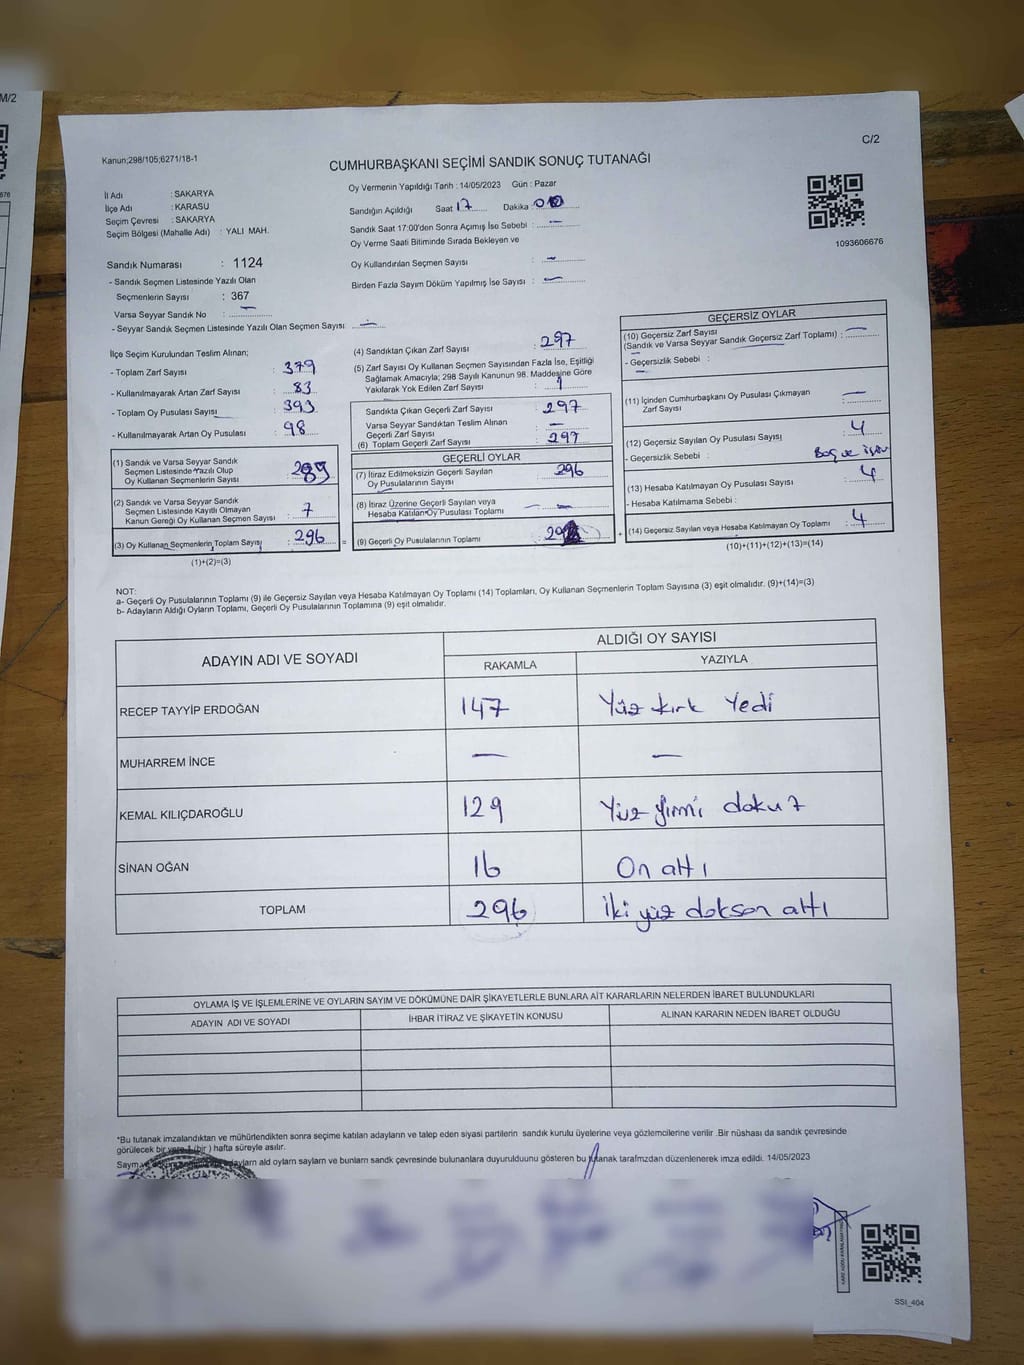 M/2
C/2
Kanun;298/105;6271/18-1
CUMHURBAŞKANI SEÇİMİ SANDIK SONUÇ TUTANAĞI
İl Adı : SAKARYA
İlçe Adı : KARASU
Seçim Çevresi : SAKARYA
Seçim Bölgesi (Mahalle Adı) : YALI MAH.
Sandık Numarası : 1124
- Sandık Seçmen Listesinde Yazılı Olan
Seçmenlerin Sayısı : 367
Varsa Seyyar Sandık No : —
- Seyyar Sandık Seçmen Listesinde Yazılı Olan Seçmen Sayısı: —
Oy Vermenin Yapıldığı Tarih : 14/05/2023 Gün : Pazar
Sandığın Açıldığı Saat 17 Dakika
Sandık Saat 17:00'den Sonra Açımış İse Sebebi : —
Oy Verme Saati Bitiminde Sırada Bekleyen ve
Oy Kullandırılan Seçmen Sayısı : —
Birden Fazla Sayım Döküm Yapılmış İse Sayısı : —
1093606676
İlçe Seçim Kurulundan Teslim Alınan;
- Toplam Zarf Sayısı : 379
- Kullanılmayarak Artan Zarf Sayısı : 83
- Toplam Oy Pusulası Sayısı : 393
- Kullanılmayarak Artan Oy Pusulası : 98
(1) Sandık ve Varsa Seyyar Sandık
Seçmen Listesinde Yazılı Olup
Oy Kullanan Seçmenlerin Sayısı : 289
(2) Sandık ve Varsa Seyyar Sandık
Seçmen Listesinde Kayıtlı Olmayan
Kanun Gereği Oy Kullanan Seçmen Sayısı : 7
(3) Oy Kullanan Seçmenlerin Toplam Sayısı : 296 =
(1)+(2)=(3)
(4) Sandıktan Çıkan Zarf Sayısı : 297
(5) Zarf Sayısı Oy Kullanan Seçmen Sayısından Fazla İse, Eşitliği
Sağlamak Amacıyla; 298 Sayılı Kanunun 98. Maddesine Göre
Yakılarak Yok Edilen Zarf Sayısı : 1
Sandıkta Çıkan Geçerli Zarf Sayısı : 297
Varsa Seyyar Sandıktan Teslim Alınan
Geçerli Zarf Sayısı : —
(6) Toplam Geçerli Zarf Sayısı : 297
GEÇERLİ OYLAR
(7) İtiraz Edilmeksizin Geçerli Sayılan
Oy Pusulalarının Sayısı : 296
(8) İtiraz Üzerine Geçerli Sayılan veya
Hesaba Katılan Oy Pusulası Toplamı : —
(9) Geçerli Oy Pusulalarının Toplamı : +
GEÇERSİZ OYLAR
(10) Geçersiz Zarf Sayısı
(Sandık ve Varsa Seyyar Sandık Geçersiz Zarf Toplamı) : —
- Geçersizlik Sebebi : —
(11) İçinden Cumhurbaşkanı Oy Pusulası Çıkmayan
Zarf Sayısı : —
(12) Geçersiz Sayılan Oy Pusulası Sayısı : 4
- Geçersizlik Sebebi : Boş ve
(13) Hesaba Katılmayan Oy Pusulası Sayısı : 4
- Hesaba Katılmama Sebebi :
(14) Geçersiz Sayılan veya Hesaba Katılmayan Oy Toplamı : 4
(10)+(11)+(12)+(13)=(14)
NOT:
a- Geçerli Oy Pusulalarının Toplamı (9) ile Geçersiz Sayılan veya Hesaba Katılmayan Oy Toplamı (14) Toplamları, Oy Kullanan Seçmenlerin Toplam Sayısına (3) eşit olmalıdır. (9)+(14)=(3)
b- Adayların Aldığı Oyların Toplamı, Geçerli Oy Pusulalarının Toplamına (9) eşit olmalıdır.
ADAYIN ADI VE SOYADI ALDIĞI OY SAYISI
RAKAMLA YAZIYLA
RECEP TAYYİP ERDOĞAN 147 Yüz kırk Yedi
MUHARREM İNCE — —
KEMAL KILIÇDAROĞLU 129 Yüz Yirmi dokuz
SİNAN OĞAN 16 On altı
TOPLAM 296 İki yüz doksan altı
OYLAMA İŞ VE İŞLEMLERİNE VE OYLARIN SAYIM VE DÖKÜMÜNE DAİR ŞİKAYETLERLE BUNLARA AİT KARARLARIN NELERDEN İBARET BULUNDUKLARI
ADAYIN ADI VE SOYADI İHBAR İTİRAZ VE ŞİKAYETİN KONUSU ALINAN KARARIN NEDEN İBARET OLDUĞU
*Bu tutanak imzalandıktan ve mühürlendikten sonra seçime katılan adayların ve talep eden siyasi partilerin sandık kurulu üyelerine veya gözlemcilerine verilir .Bir nüshası da sandık çevresinde
görülecek bir yere 1 (bir ) hafta süreyle asılır.
ald oyların saylarn ve bunların sandk çevresinde bulunanlara duyurulduunu gösteren bu tutanak tarafmzdan düzenlenerek imza edildi. 14/05/2023
SSI_404